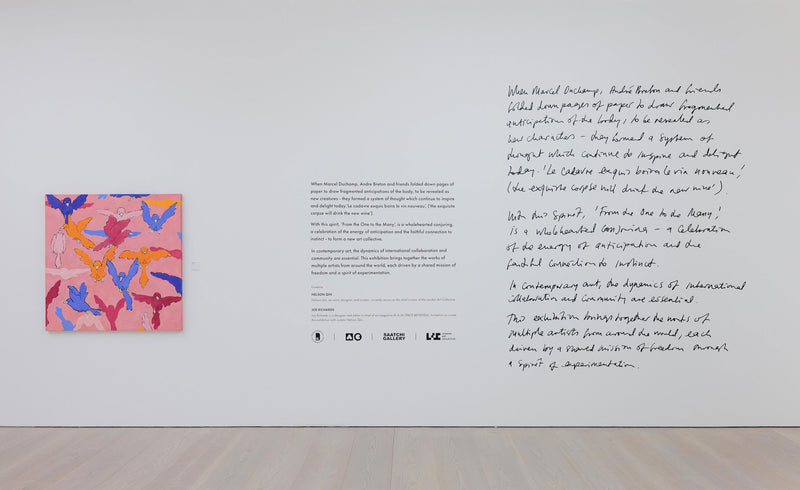 When Marcel Duchamp, Andre Breton and friends folded down pages of
paper to draw fragmented anticipations of the body, to be revealed as
new creatures – they formed a system of thought which continue to inspire
and delight today.'Le cadavre exquis boira le vin nouveau', ('the exquisite
corpse will drink the new wine').
With this spirit, 'From the One to the Many', is a wholehearted conjuring,
a celebration of the energy of anticipation and the faithful connection to
instinct - to form a new art collective.
In contemporary art, the dynamics of international collaboration and
community are essential. This exhibition brings together the works of
multiple artists from around the world, each driven by a shared mission of
freedom and a spirit of experimentation.
NELSON QIN
JOE RICHARDS
SAATCHI
GALLERY
When Marcel Duchamp, André Breton and friends
folded down pages of paper to draw fragmented
anticipations of the body, to be revealed as
new characters – they formed a system of
thought which continue to inspire and delight
today. 'Le cadavre exquis boira le vin nouveau,'
(the exquisite corpse will drink the new wine').
With this Spirit, 'From the One to the Many,'
is a wholehearted conjuring – a celebration
of the energy of anticipation and the
faithful connection to instinct.
In contemporary art, the dynamics of international
collaboration and community are essential.
This exhibition brings together the works of
multiple artists from around the world, each
driven by a shared mission of freedom through
a spirit of experimentation.